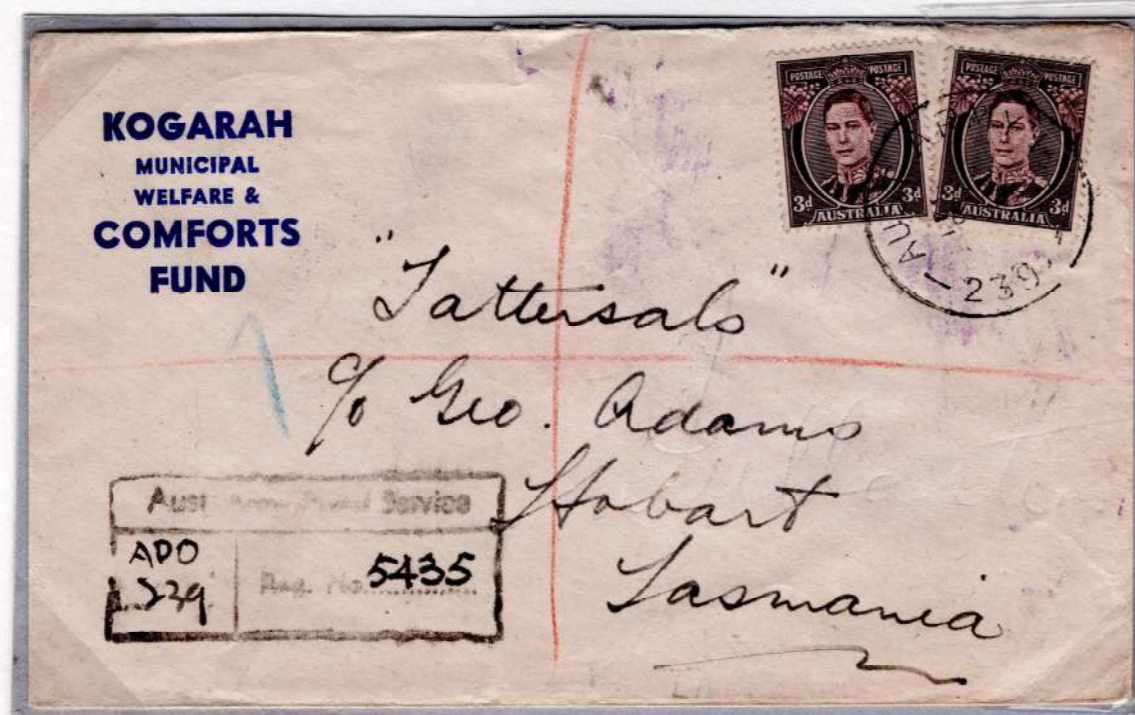 KOGARAH
MUNICIPAL
WELFARE &
COMFORTS
FUND
POSTAGE POSTAGE
3d AUSTRALIA 3d
POSTAGE POSTAGE
3d AUSTRALIA 3d
AU
239
"Tattersals"
c/o Geo. Adams
Hobart
Tasmania
Aust Army Postal Service
APO
239
Reg. No. 5435